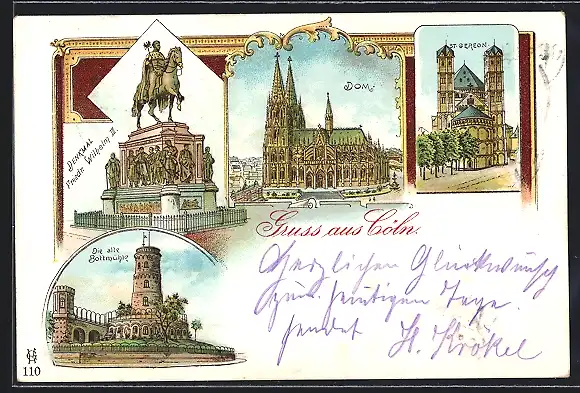 DENKMAL
Friedr. Wilhelm III.
DOM.
ST. GEREON.
Gruss aus Cöln.
Die alte
Bottmühle
Herzlichen Glückwunsch
zum heutigen Tage.
sendet H. Krökel
110